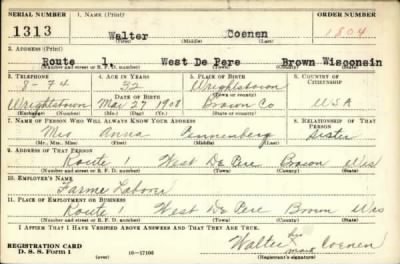 SERIAL NUMBER 1. NAME (Print) ORDER NUMBER
1313 Walter Coenen 1804
(First) (Middle) (Last)
2. ADDRESS (Print)
Route 1. West De Pere Brown Wisconsin
(Number and street or R. F. D. number) (Town) (County) (State)
3. TELEPHONE 4. AGE IN YEARS 5. PLACE OF BIRTH 6. COUNTRY OF CITIZENSHIP
8-74 32 Wrightstown
DATE OF BIRTH (Town or county)
Wrightstown Mar 27 1908 Brown Co U.S.A
(Exchange) (Number) (Mo.) (Day) (Yr.) (State or country)
7. NAME OF PERSON WHO WILL ALWAYS KNOW YOUR ADDRESS 8. RELATIONSHIP OF THAT PERSON
Mrs Anna Sister
(Mr., Mrs., Miss) (First) (Middle) (Last)
9. ADDRESS OF THAT PERSON
Route 1 West De Pere Brown Wis
(Number and street or R. F. D. number) (Town) (County) (State)
10. EMPLOYER'S NAME
Farme Laborer
11. PLACE OF EMPLOYMENT OR BUSINESS
Route 1 West De Pere Brown Wis
(Number and street or R. F. D. number) (Town) (County) (State)
I AFFIRM THAT I HAVE VERIFIED ABOVE ANSWERS AND THAT THEY ARE TRUE.
REGISTRATION CARD
D. S. S. Form 1 (over) 16-17105
Walter his mark Coenen
(Registrant's signature)